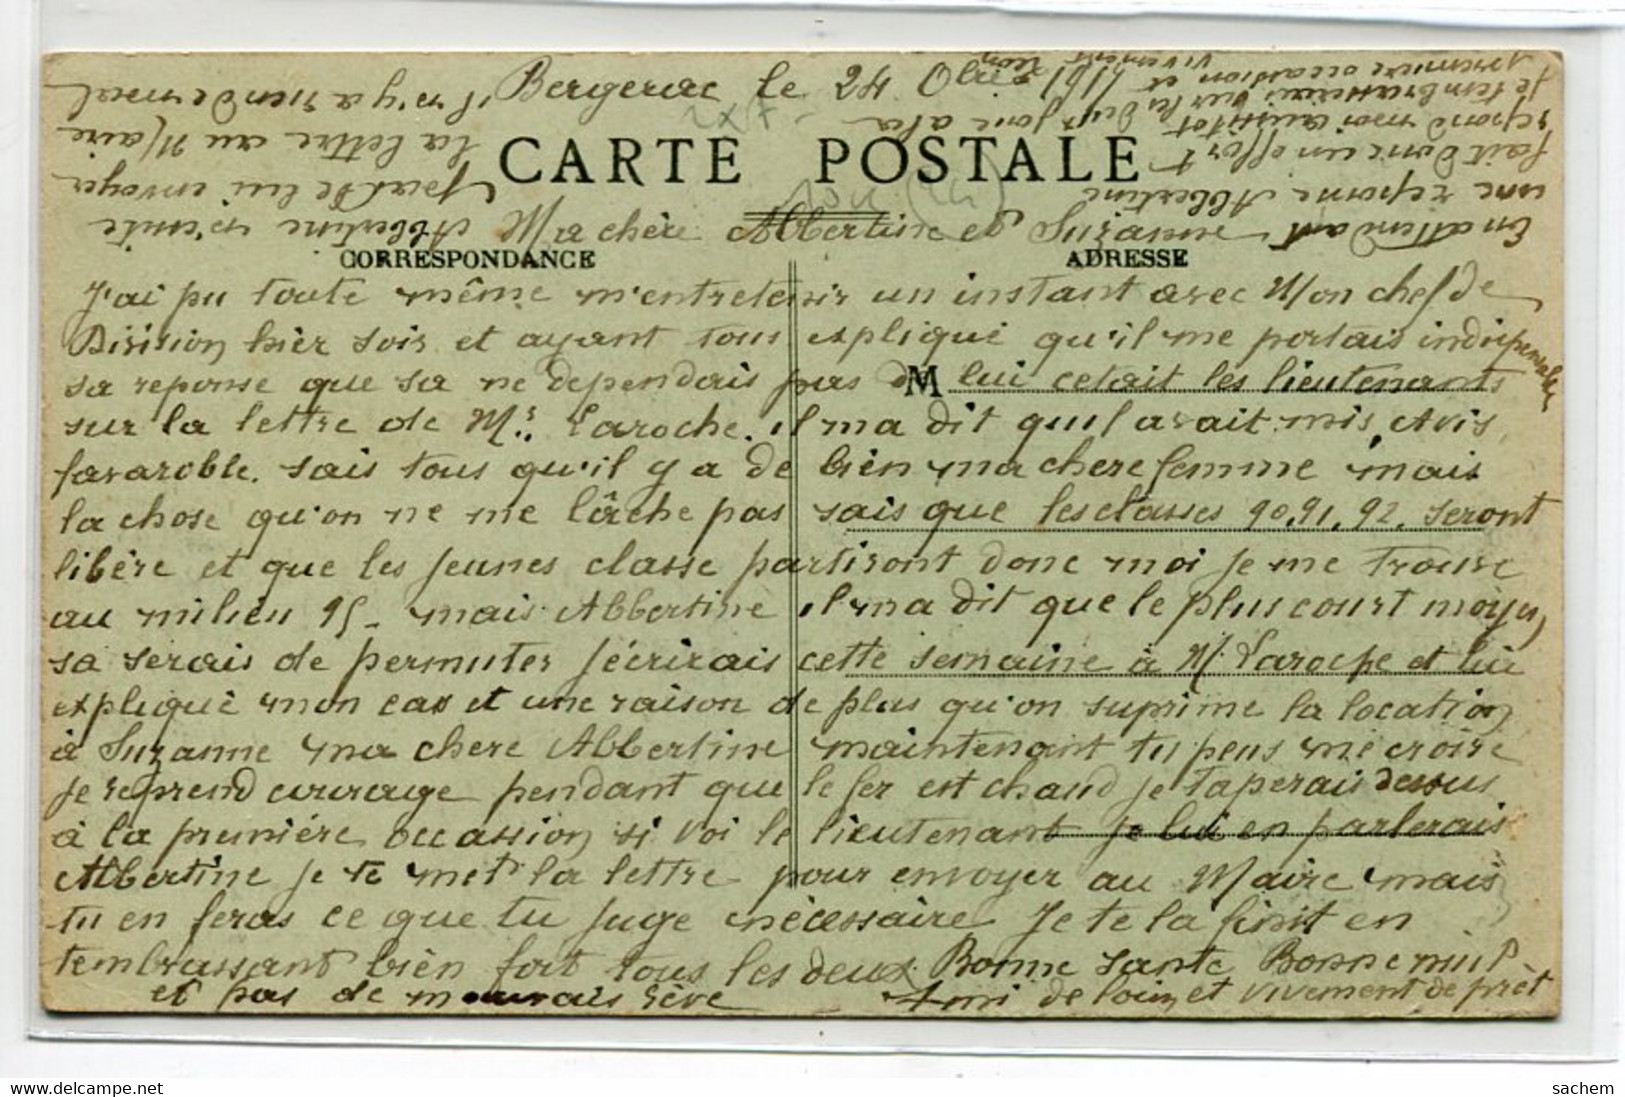 Bergerac le 24 Obre
CARTE POSTALE
Ma chère Abbertine et Suzanne
CORRESPONDANCE
ADRESSE
J'ai pu toute même m'entretenir un instant avec Mon chef de
Division hier soir et ayant tous expliqué qu'il me portais indispensable
sa reponse que sa ne dependais pas de M lui cetait les lieutenants
sur la lettre de Mr. Laroche. il ma dit quil avait mis, Avis
favaroble. sais tous qu'il y a de bien ma chere femme mais
la chose qu'on ne me lâche pas sais que les classes 90, 91, 92. seront
libère et que les jeunes classe partiront donc moi je me trouve
au milieu 95 - mais Abbertine il ma dit que le plus court moyen
sa serais de permuter j'écrirais cette semaine à M. Laroche et lui
expliqué mon cas et une raison de plus qu'on suprime la location
à Suzanne ma chere Abbertine maintenant tu peus me croire
je reprend courage pendant que le fer est chaud je taperais dessus
à la première occassion si voi le lieutenant je lui en parlerais
Abbertine je te met la lettre pour envoyer au Maire mais
tu en feras ce que tu juge nécessaire Je te la finit en
tembrassant bien fort tous les deux Bonne sante Bonne nuit
et pas de mauvais rève Ami de loin et vivement de prèt
En attendant
une reponse Abbertine
fait donc un effort
repond moi aussitot
je tembrasserais sur les deux joue a la
premiere occassion et
vivement
Léon
Abbertine m'enuie
pas de lui envoyer
la lettre au Maire
il n'y a rien de mal
delcampe.net
sachem